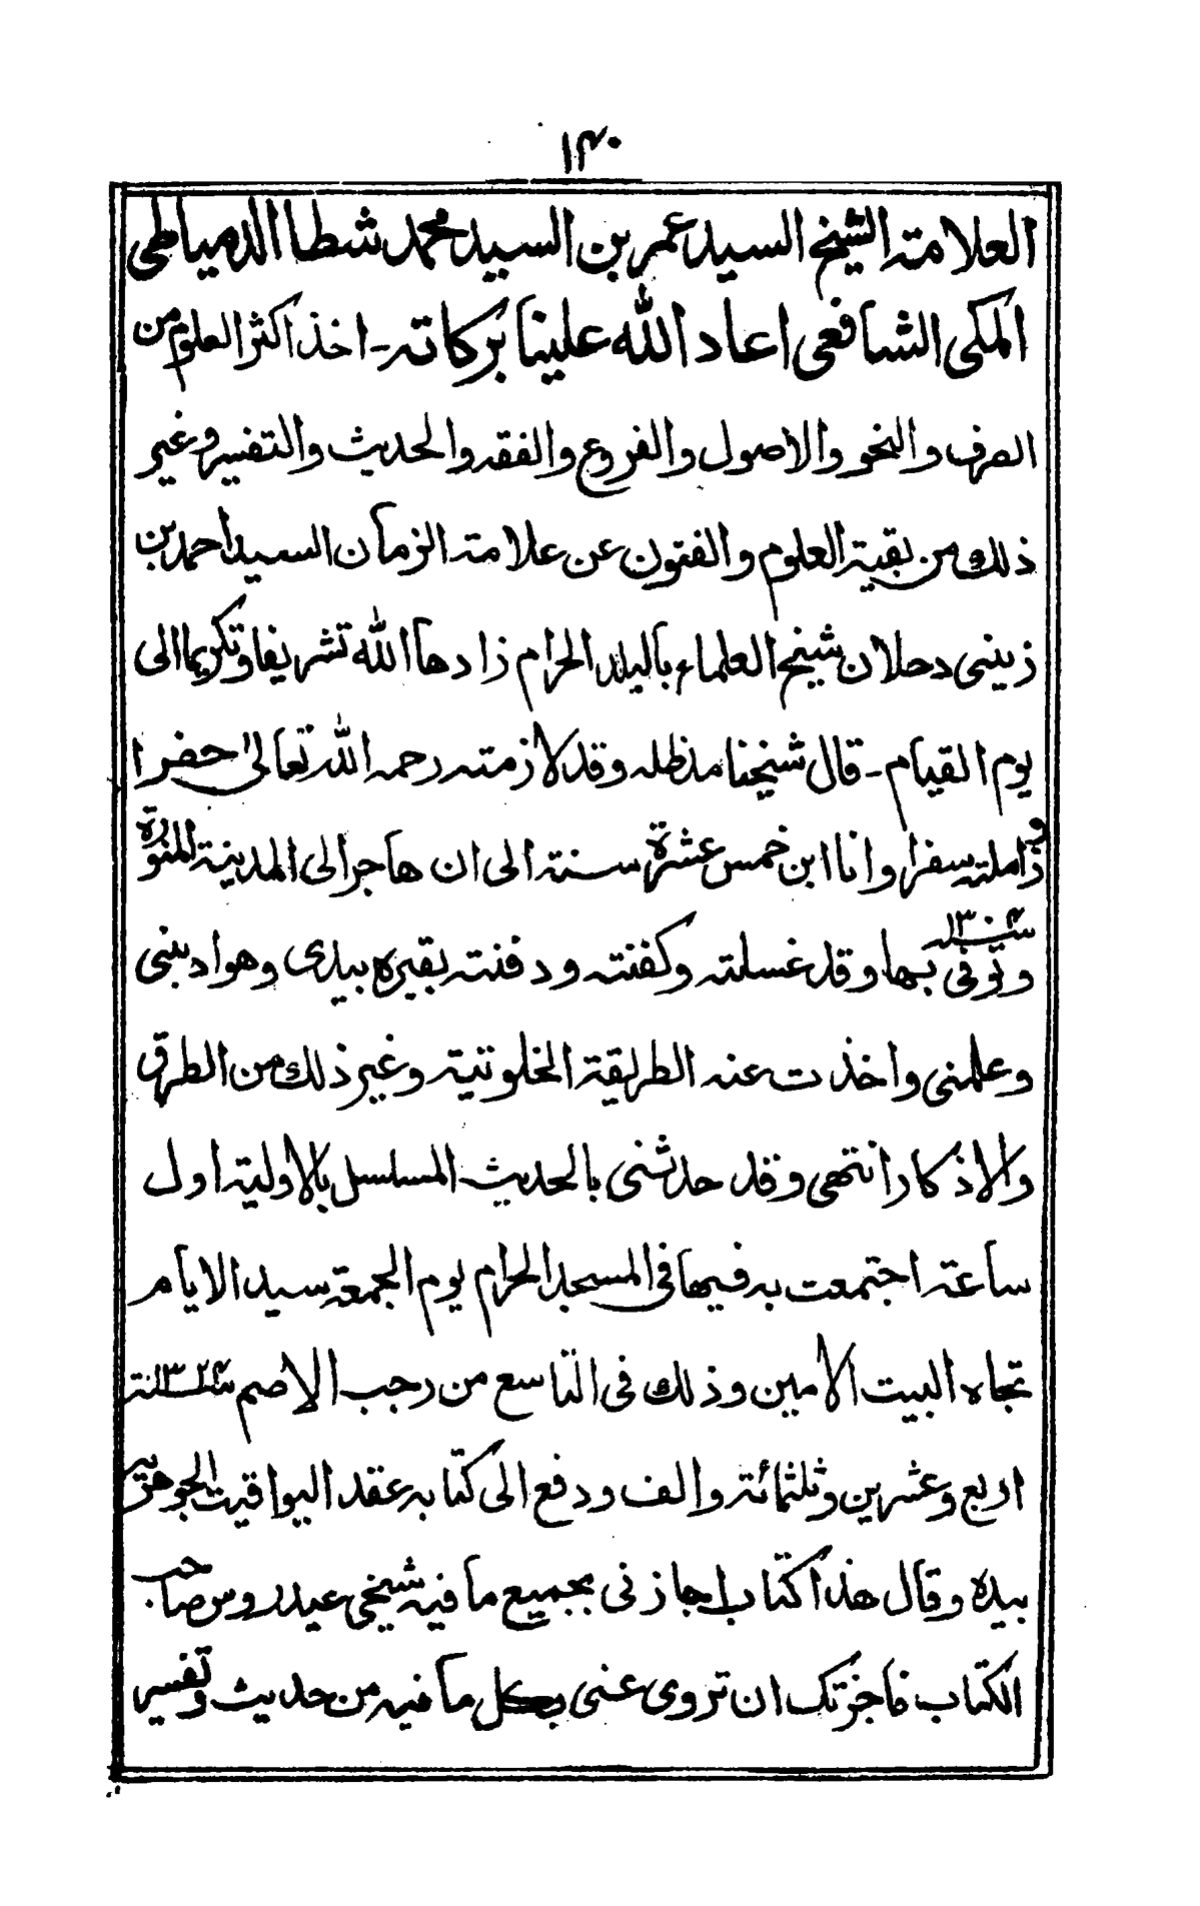 ۱۴۰
العلامة الشيخ السيد عمر بن السيد محمد شطا الدمياطى
المكى الشافعى اعاد الله علينا بركاته ـ اخذ اكثر العلوم من
الصرف والنحو والاصول والفروع والفقه والحديث والتفسير وغير
ذلك من بقية العلوم والفنون عن علامة الزمان السيد احمد بن
زينى دحلان شيخ العلماء بالبلد الحرام زادها الله تشريفا وتكريما الى
يوم القيام ـ قال شيخنا مد ظله وقد لازمته رحمه الله تعالىٰ حضرا
وخدمته سفرا وانا ابن خمس عشرة سنة الى ان هاجر الى المدينة المنورة
وتوفى بها سنه ۱۳۰۴ وقد غسلته وكفنته ودفنته بقبره بيدى وهو ادبنى
وعلمنى واخذت عنه الطريقة الخلوتية وغير ذلك من الطرق
والاذكار انتهى وقد حدثنى بالحديث المسلسل بالاولية اول
ساعة اجتمعت به فيها فى المسجد الحرام يوم الجمعة سيد الايام
تجاه البيت الامين وذلك فى التاسع من رجب الاصم ۱۳۲۴سنة
اربع وعشرين وثلثمائة والف ودفع الى كتابه عقد اليواقيت الجوهرية
بيده وقال هذا كتاب اجازنى بجميع ما فيه شيخى عيدروس صاحب
الكتاب فاجزتك ان تروى عنى بكل ما فيه من حديث وتفسير